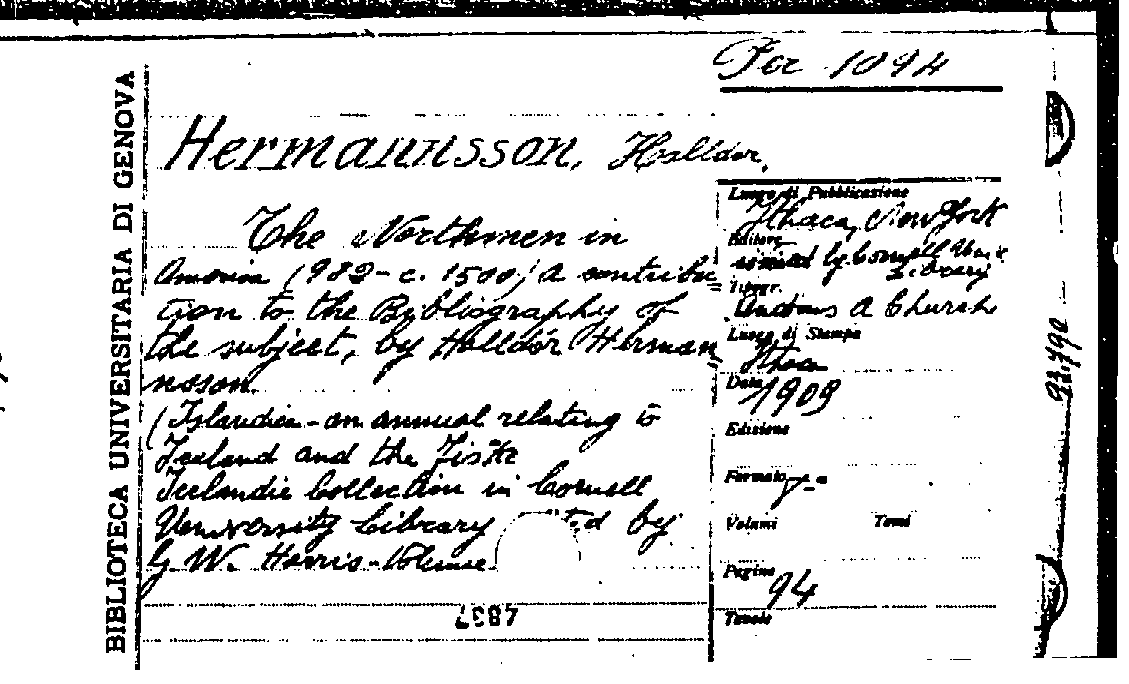 Per 1094
BIBLIOTECA UNIVERSITARIA DI GENOVA
Hermannsson, Halldór,
The Northmen in
America (982-c. 1500) a contribu=
tion to the Bybliography of
the subject, by Halldór Herman=
nsson.
(Islandica - an annual relating to
Iceland and the Fiske
Icelandic Collection in Cornell
University Library by
G. W. Harris - Volume
4837
Luogo di Pubblicazione
Ithaca, New York
Editore
by Cornell Univ.
Library
Tipogr.
Andrus A Church
Luogo di Stampa
Ithaca
Data 1909
Edizione
Formato
Volumi Tomi
Pagine 94
Tavole